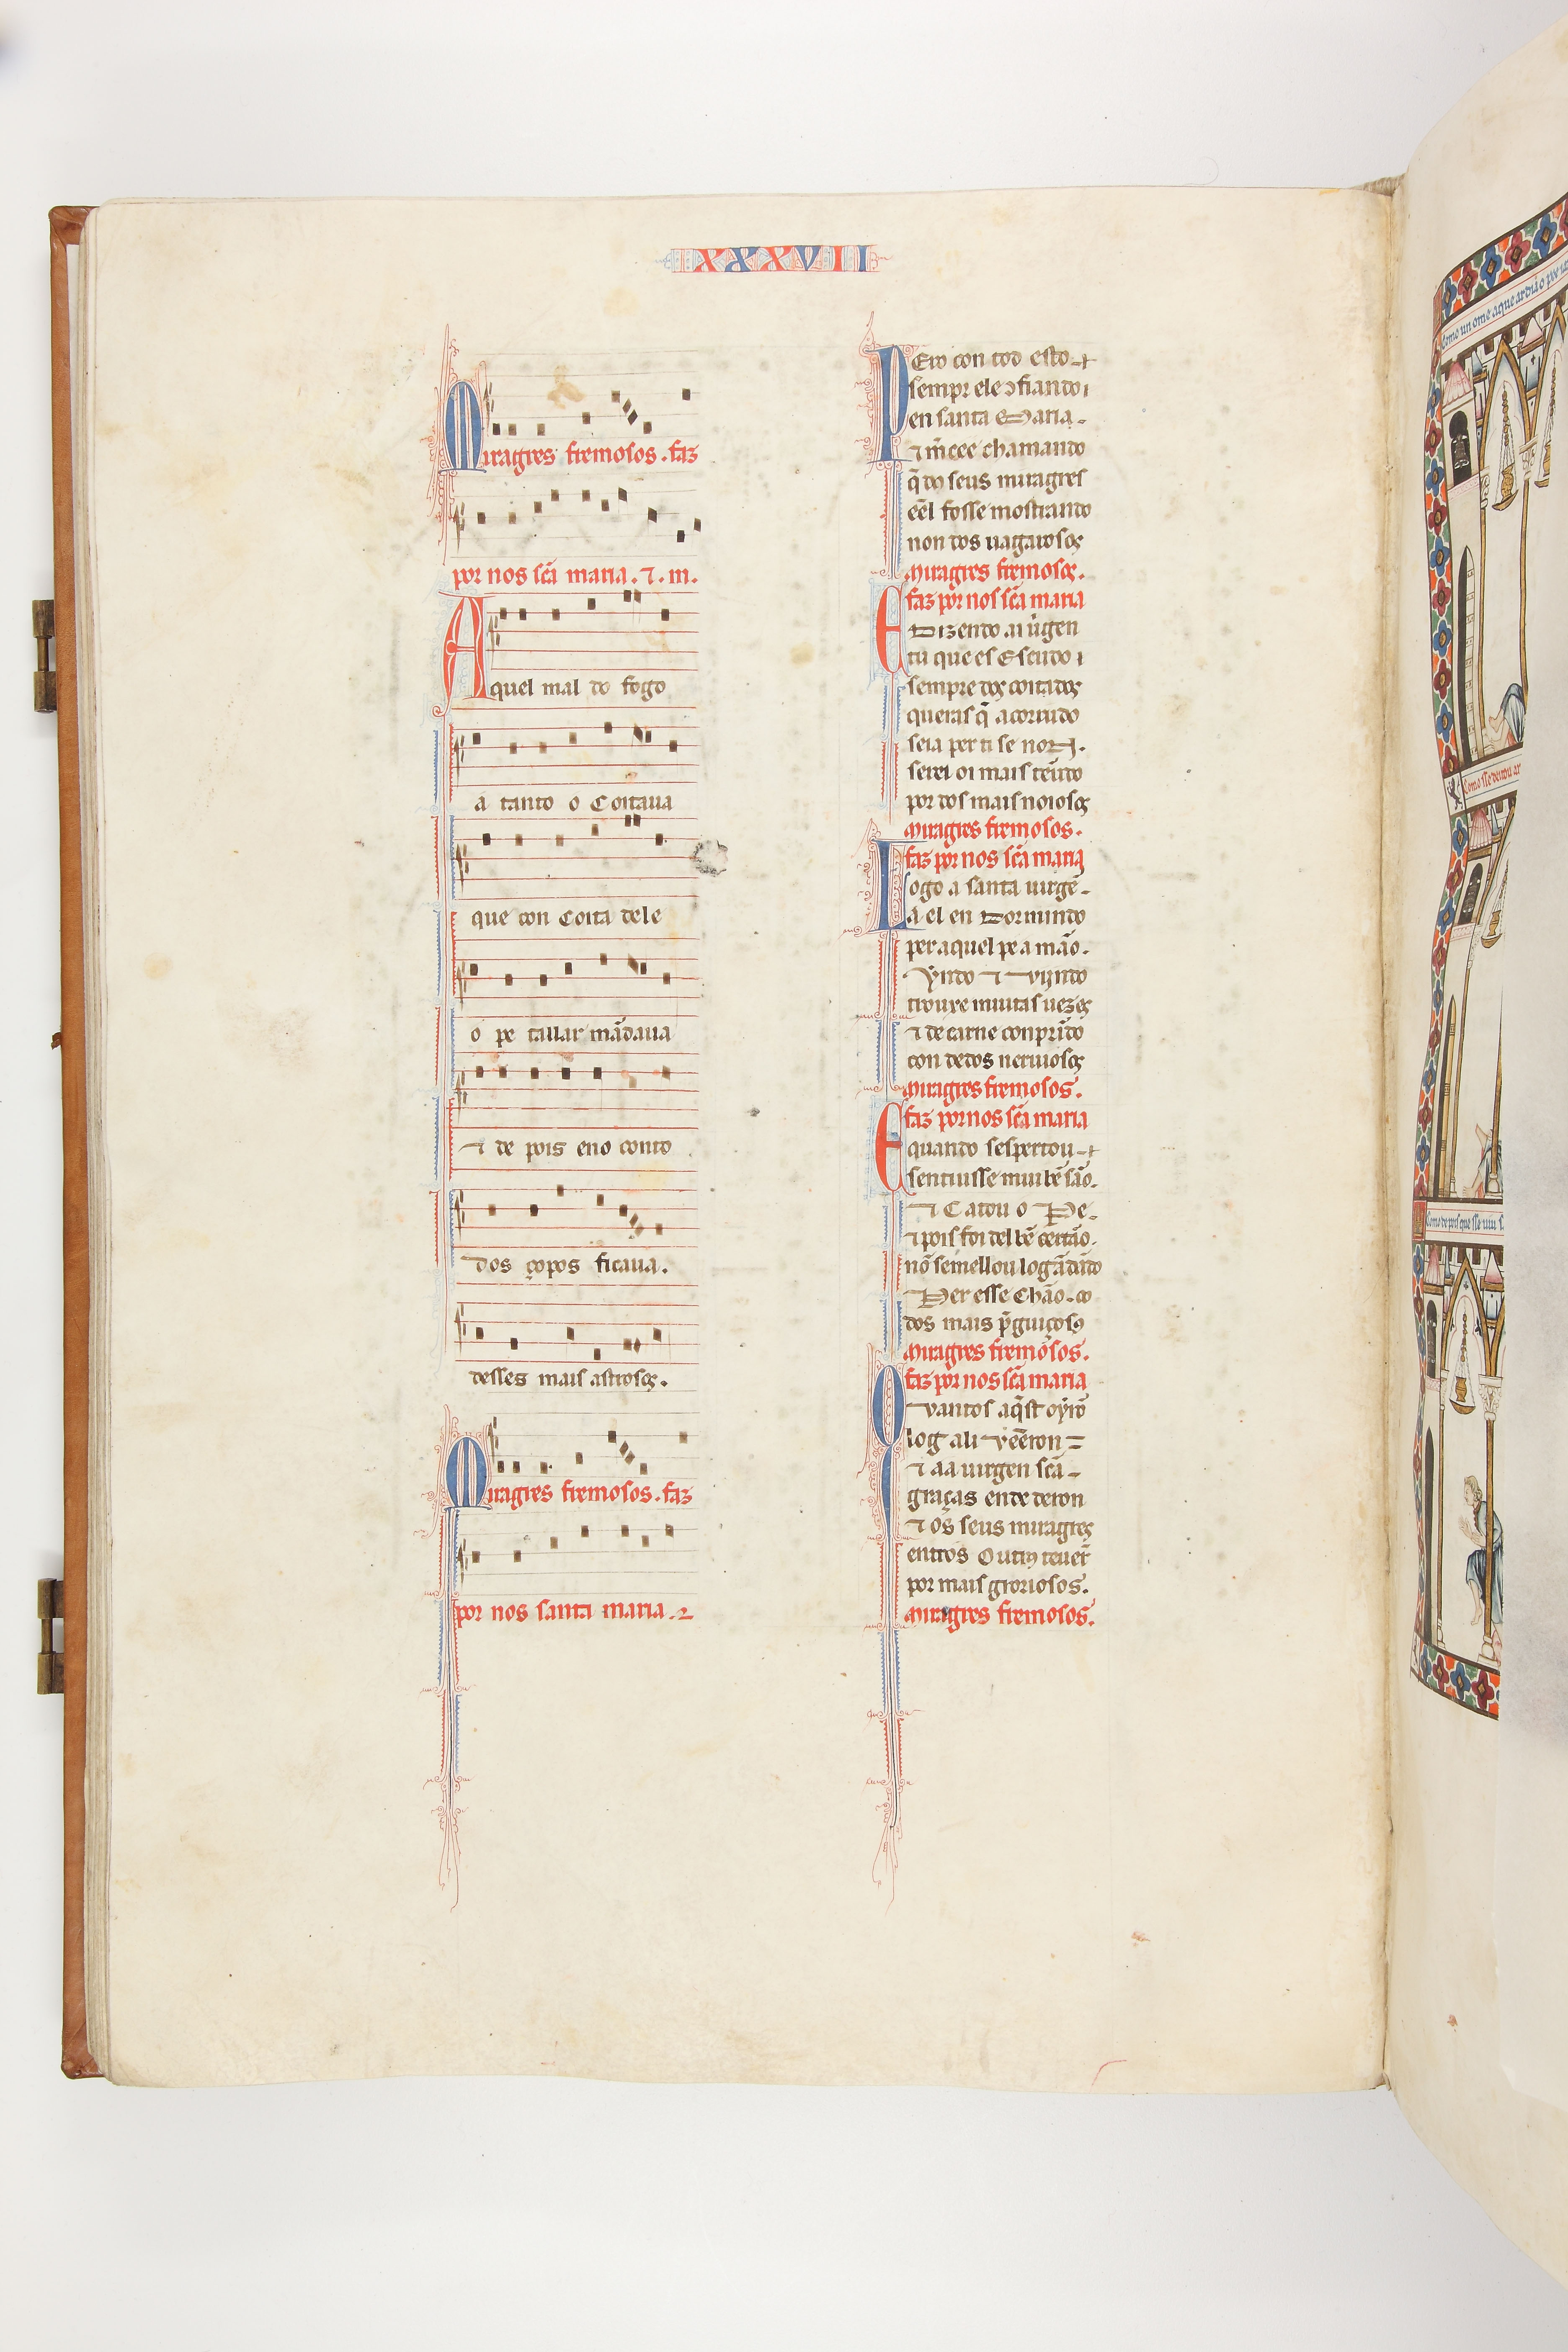 XXXVII
Miragres fremosos . faz
por nos sc̃a maria . ⁊ . m.
Aquel mal do fogo
a tanto o Coitaua
que con Coita dele
o pe tallar mãdaua
⁊ de pois eno conto
dos çopos ficaua.
desses mais astrosos.
Miragres fremosos . faz
por nos santa maria . ⁊
PEro con tod esto
sempr ele ↄfiando
en santa Maria .
⁊ m̃cee chamando
q̃ do seus miragres
eel fosse mostrando
non dos uagarosos
Miragres fremosos.
faz por nos sc̃a maria
E Dizendo . ai uirgen
tu que es Escudo
sempre dos coitados
queras q̃ acorrudo
seia per ti se non .
serei oi mais tẽudo
por dos mais noiosos
Miragres fremosos.
faz por nos sc̃a maria
Logo a santa uirgẽ
A el en Dormindo
per aquel pe a mão.
Yndo ⁊ vijndo
trouxe muitas uezes
⁊ de carne conprĩdo
con dedos neruiosos
Miragres fremosos.
faz por nos sc̃a maria
E quando sespertou
sentiusse mui bẽ são.
⁊ Catou o Pe.
⁊ pois foi del bẽ certão.
nõ semellou logãdãdo
Per esse Chão . co
dos mais p̃guiçosos
Miragres fremosos.
faz por nos sc̃a maria
Quantos aq̃st oyrõ
log ali vẽeron
⁊ aa uirgen sc̃a
graças ende deron
⁊ os seus miragres
entros Outros teuerõ
por mais groriosos.
Miragres fremosos.
Como un ome aque ardia o pe
Como sse deitou
Como de pois que sse uiu s